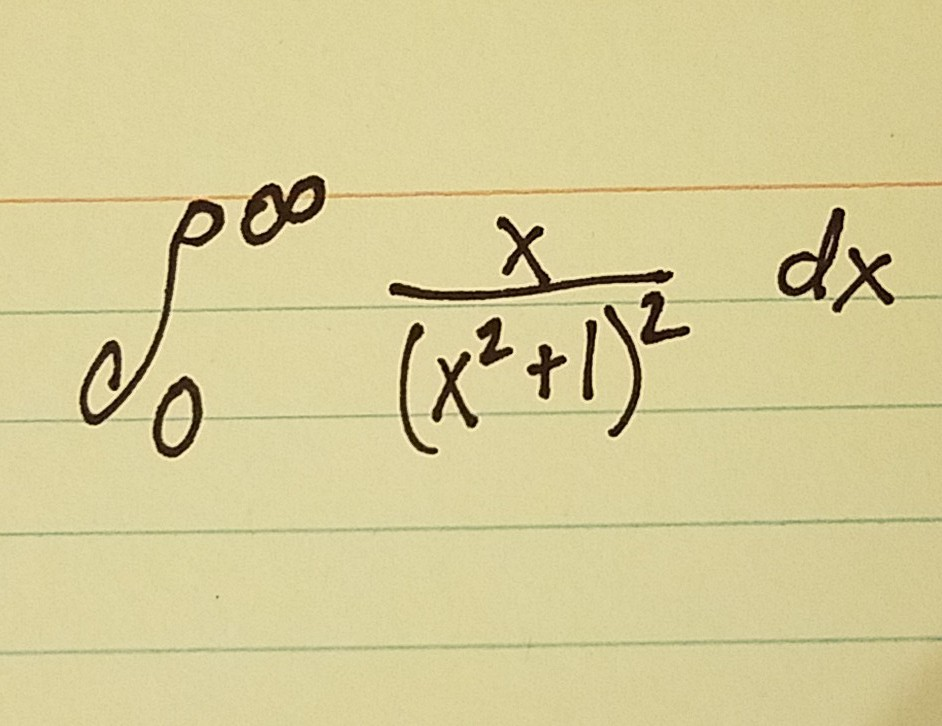 ∫₀^∞ x/(x²+1)² dx